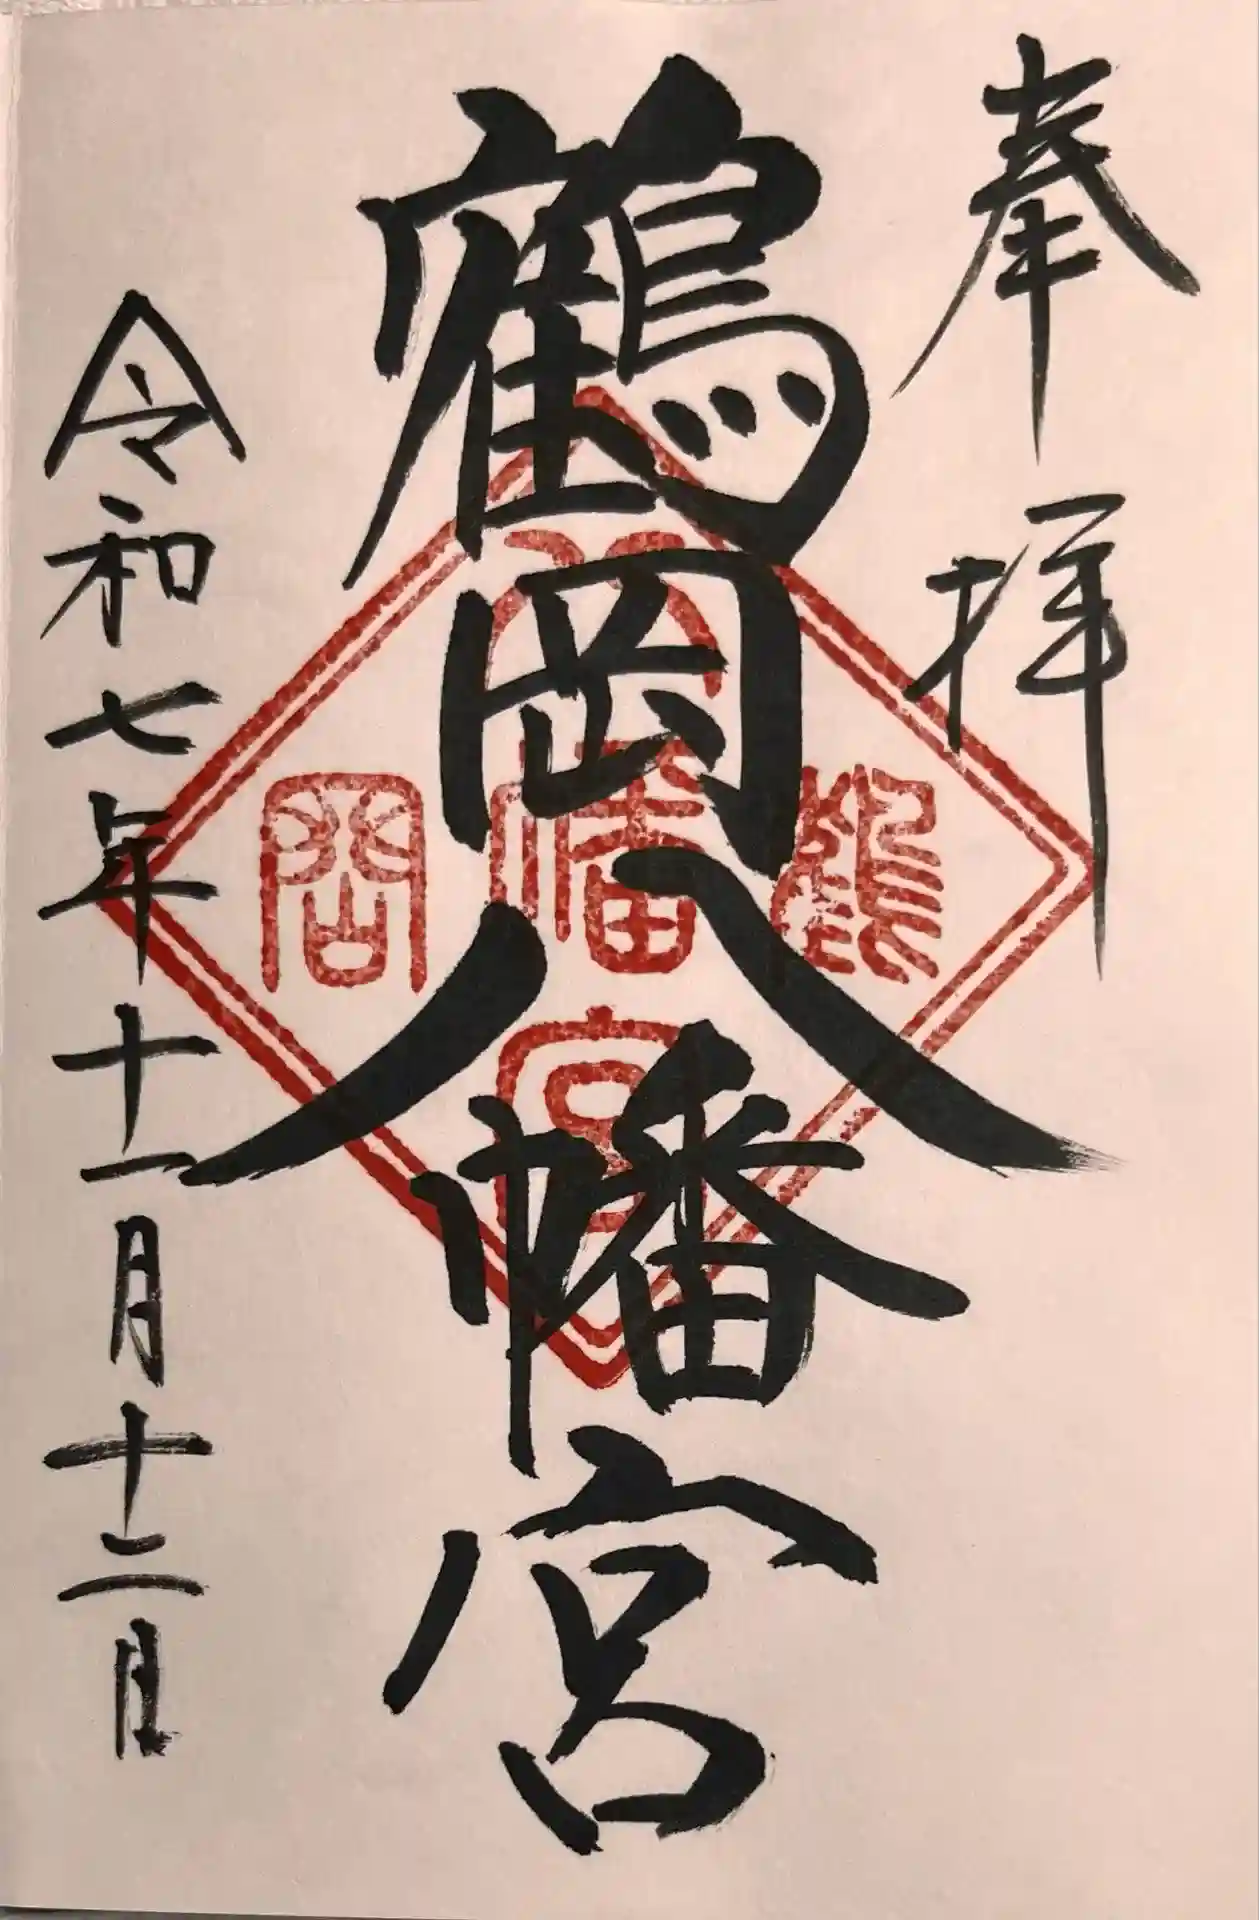 奉拝
鶴岡八幡宮
鶴岡八幡宮
令和七年十一月十二日